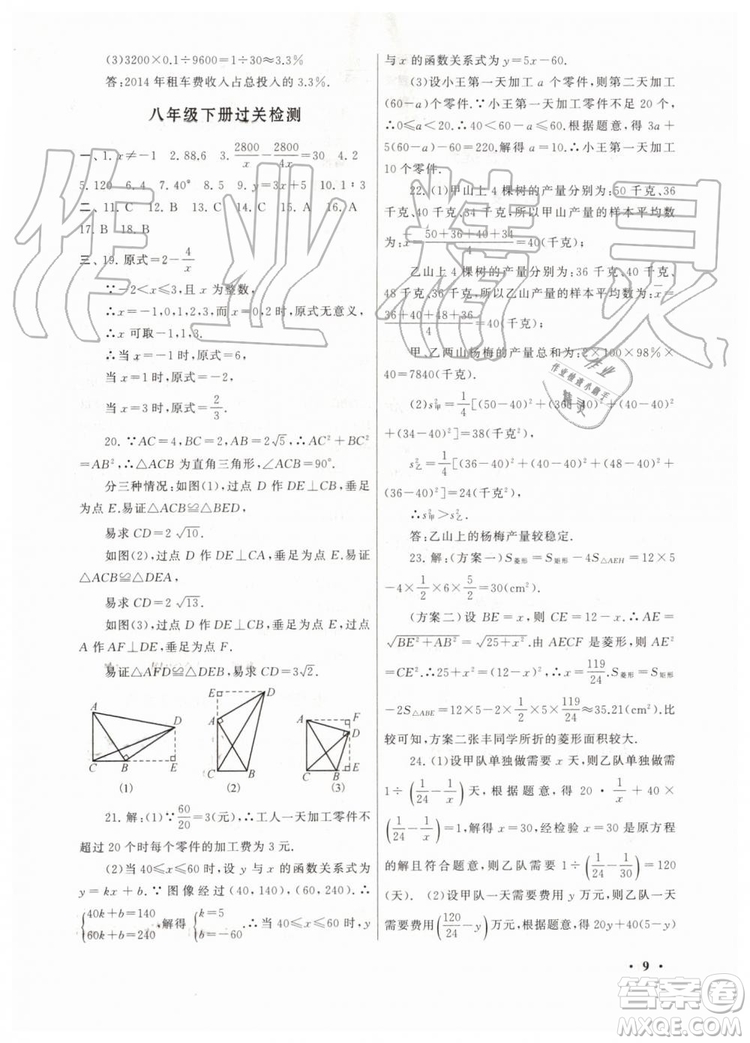 (3)3200×0.1÷9600=1÷30≈3.3%
答:2014年租车费收入占总投入的3.3%.
八年级下册过关检测
一、1.x≠-1 2.88,6 3.2800/x-2800/4x=30 4.2
5.120 6.4 7.40° 8.< 9.y=3x+5 10.1:3
二、11.C 12.B 13.C 14.C 15.A 16.A
17.B 18.B
三、19.原式=2-4/x
∵-2<x≤3且x为整数,
∴x=-1,0,1,2,3时,原式无意义,
∴x可取-1,1,3.
当x=1时,原式=-2
当x=3时,原式=2/3.
20.∵AC=4,BC=2,AB=2√5,∴AC²+BC²
=AB²,∴△ACB为直角三角形,∠ACB=90°.
分三种情况:如图(1),过点D作DE⊥CB,垂足
为点E.易证△ACB≌△BED
易求CD=2√10.
如图(2),过点D作DE⊥CA,垂足为点E.易证
△ACB≌△DEA,
易求CD=2√13.
如图(3),过点D作DE⊥CB,垂足为点E,过点
A作AF⊥DE,垂足为点F.
易证△AFD≌△DEB,易求CD=3√2.
A D C B E
E D A C B
A F D C B E
(1) (2) (3)
21.解:(1)∵60/20=3(元),∴工人一天加工零件不
超过20个时每个零件的加工费为3元.
(2)当40≤x≤60时,设y与x的函数关系式为
y=kx+b.∵图像经过(40,140),(60,240),∴
{40k+b=140 60k+b=240,解得{k=5 b=-60.∴当40≤x≤60时,y
与x的函数关系式为y=5x-60.
(3)设小王第一天加工a个零件,则第二天加工
(60-a)个零件.∵小王第一天加工零件不足20个,
∴0≤a<20,∴60-a>40.根据题意,得3a+
5(60-a)-60=220,解得a=10.∴小王第一天加工
10个零件.
22.(1)甲山上4棵树的产量分别为:50千克,36
千克,40千克,34千克,所以甲山产量的样本平均数
为:x=50+36+40+34/4=40(千克);
乙山上4棵树的产量分别为:36千克,40千克,48
千克,36千克,所以乙山产量的样本平均数为x=
36+40+48+36/4=40(千克);
甲、乙两山杨梅的产量总和为:2×100×98%×
40=7840(千克);
(2)s²甲=1/4[(50-40)²+(36-40)²+(40-
40)²+(34-40)²]=38(千克²),
s²乙=1/4[(36-40)²+(40-40)²+(48-40)²
+(36-40)²]=24(千克²),
∴s²甲>s²乙.
答:乙山上的杨梅产量较稳定.
23.解:(方案一)S菱形=S矩形-4S△AEH=12×5
-4×1/2×6×5/2=30(cm²).
(方案二)设BE=x,则CE=12-x,∴AE=
√BE²+AB²=√25+x².由AECF是菱形,则AE²
=CE²,∴25+x²=(12-x)²,∴x=119/24.S菱形=S矩形
-2S△ABE=12×5-2×1/2×5×119/24≈35.21(cm²).
比较可知,方案二张丰同学所折的菱形面积较大.
24.(1)设甲队单独做需要x天,则乙队单独做需
1÷(1/24-1/x)=(天).根据题意,得20×1/x+40×
(1/24-1/x)=1,解得x=30,经检验x=30是原方程
的解且符合题意,则乙队需要1÷(1/24-1/30)=120
(天). (2)设甲队一天需要费用y万元,则乙队一天
需要费用(120/24-y)万元,根据题意,得20y+40(5-
· 9 ·
作业精灵
作业
作业检查小助手
精灵
答案圈
MXQE.COM